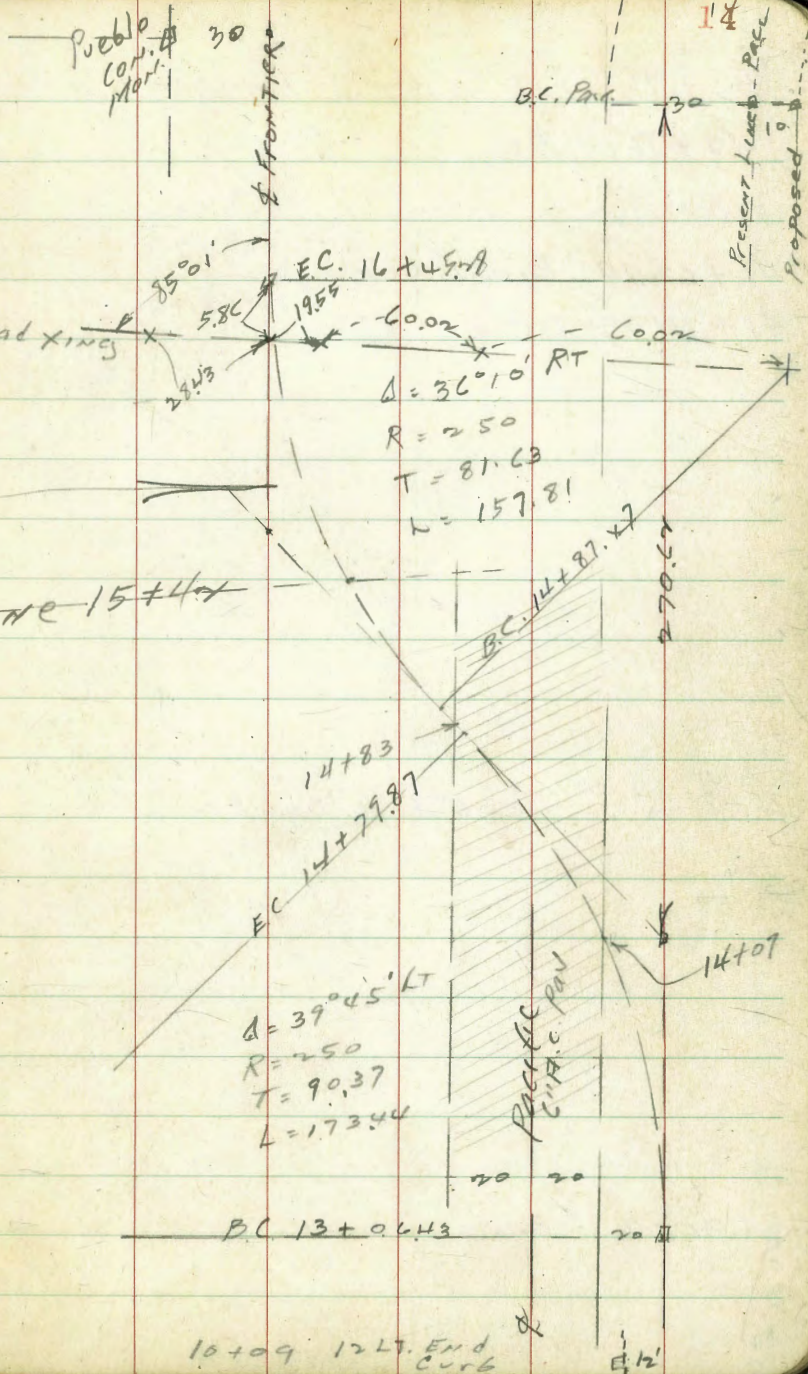 14
Pueblo 30
CON.
MON.
℄ FRONTIER
B.C. Pac.
30
Present
Proposed
85°01'
E.C. 16+45.28
5.86
19.55
60.02
60.02
XING
28.43
Δ = 36°10' RT
R = 250
T = 81.63
L = 157.81
270.62
15+42
B.C. 14+87.47
14+83
EC 14+79.87
14+09
Δ = 39°45' LT
R = 250
T = 90.37
L = 173.44
Pacific
6" A.C. Pav
20 20
BC 13+06.43
20
℄
10+09 12 LT. End
Curb
12'